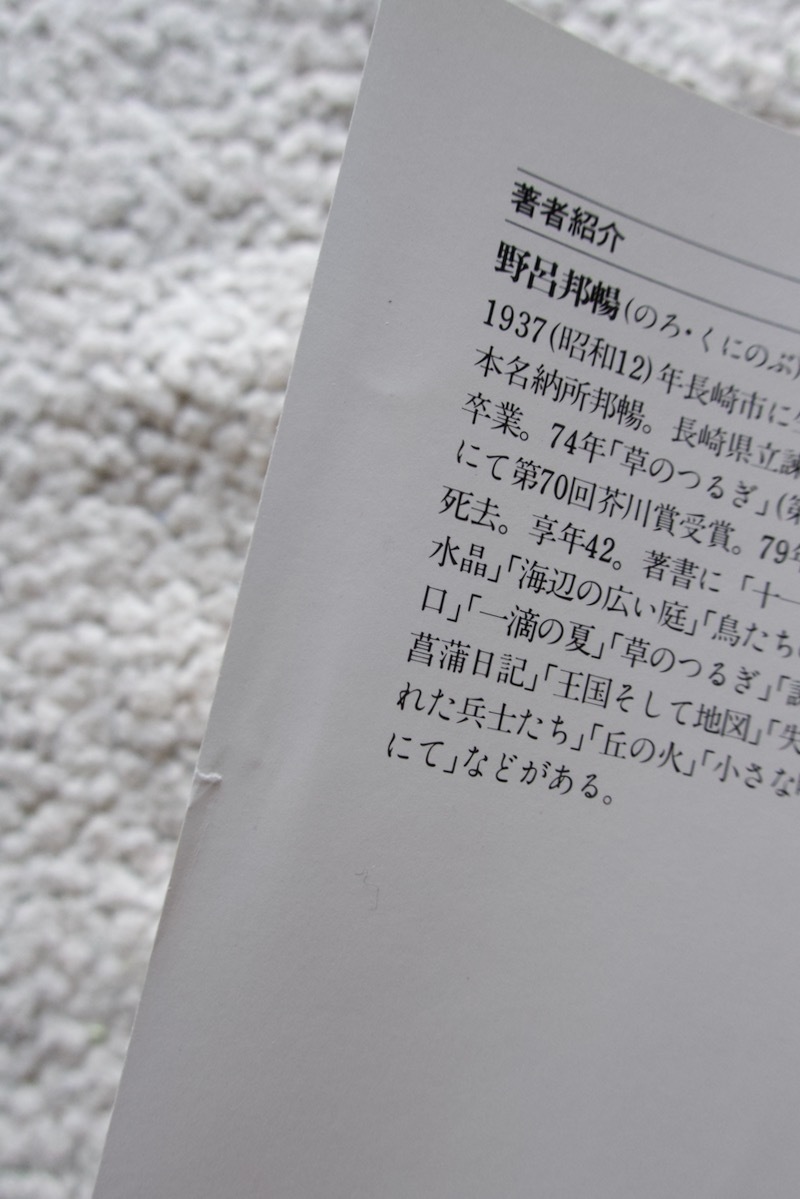 著者紹介
野呂邦暢(のろ・くにのぶ)
1937(昭和12)年長崎市に生
本名納所邦暢。長崎県立諫
卒業。74年「草のつるぎ」(第
にて第70回芥川賞受賞。79年
死去。享年42。著書に「十一
水晶」「海辺の広い庭」「鳥たちの
口」「一滴の夏」「草のつるぎ」「諫
菖蒲日記」「王国そして地図」「失
れた兵士たち」「丘の火」「小さな町
にて」などがある。